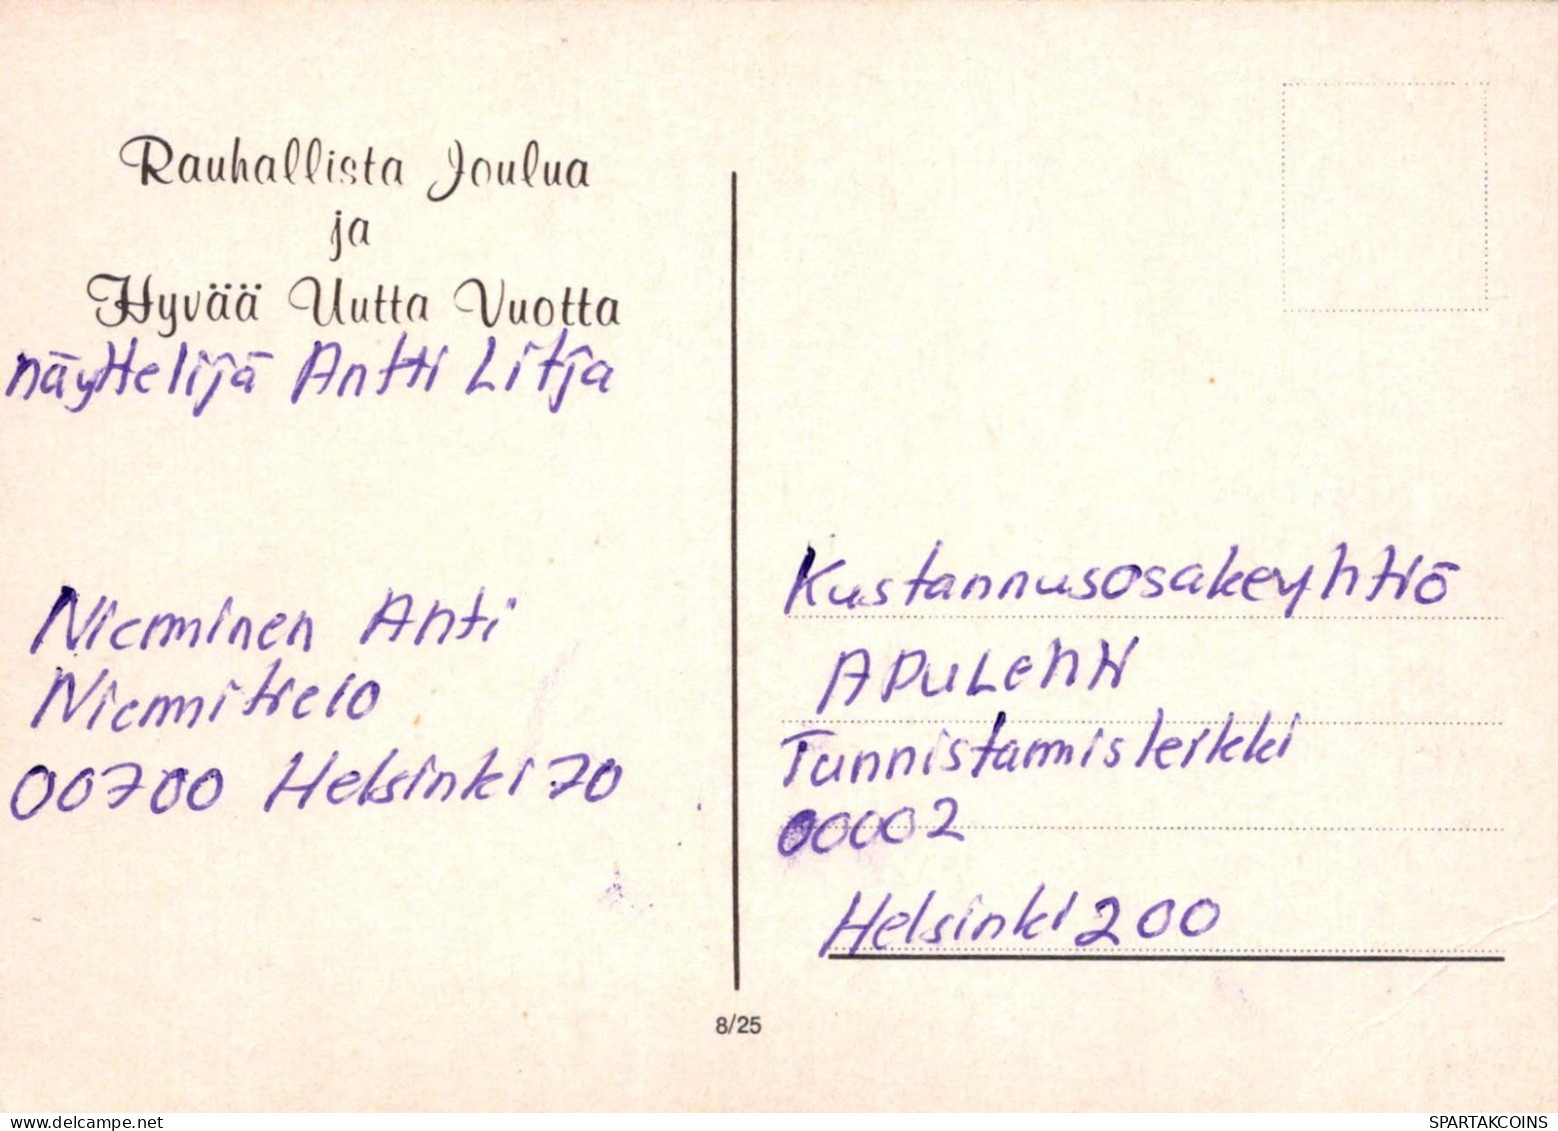 Rauhallista Joulua
ja
Hyvää Uutta Vuotta
näyttelijä Antti Litja
Nieminen Antti
Niemitie 10
00700 Helsinki 70
Kustannusosakeyhtiö
APULEHTI
Tunnistamisleikki
00002
Helsinki 200
8/25
delcampe.net
SPARTAKCOINS